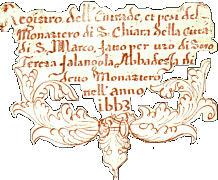 Registro dell'Entrade, et pesi del
Monastero di S. Chiara della Città
di S. Marco, fatto per uso di Soro
Tereza Falangola, Abbadessa di
detto Monastero
nell'anno
1663